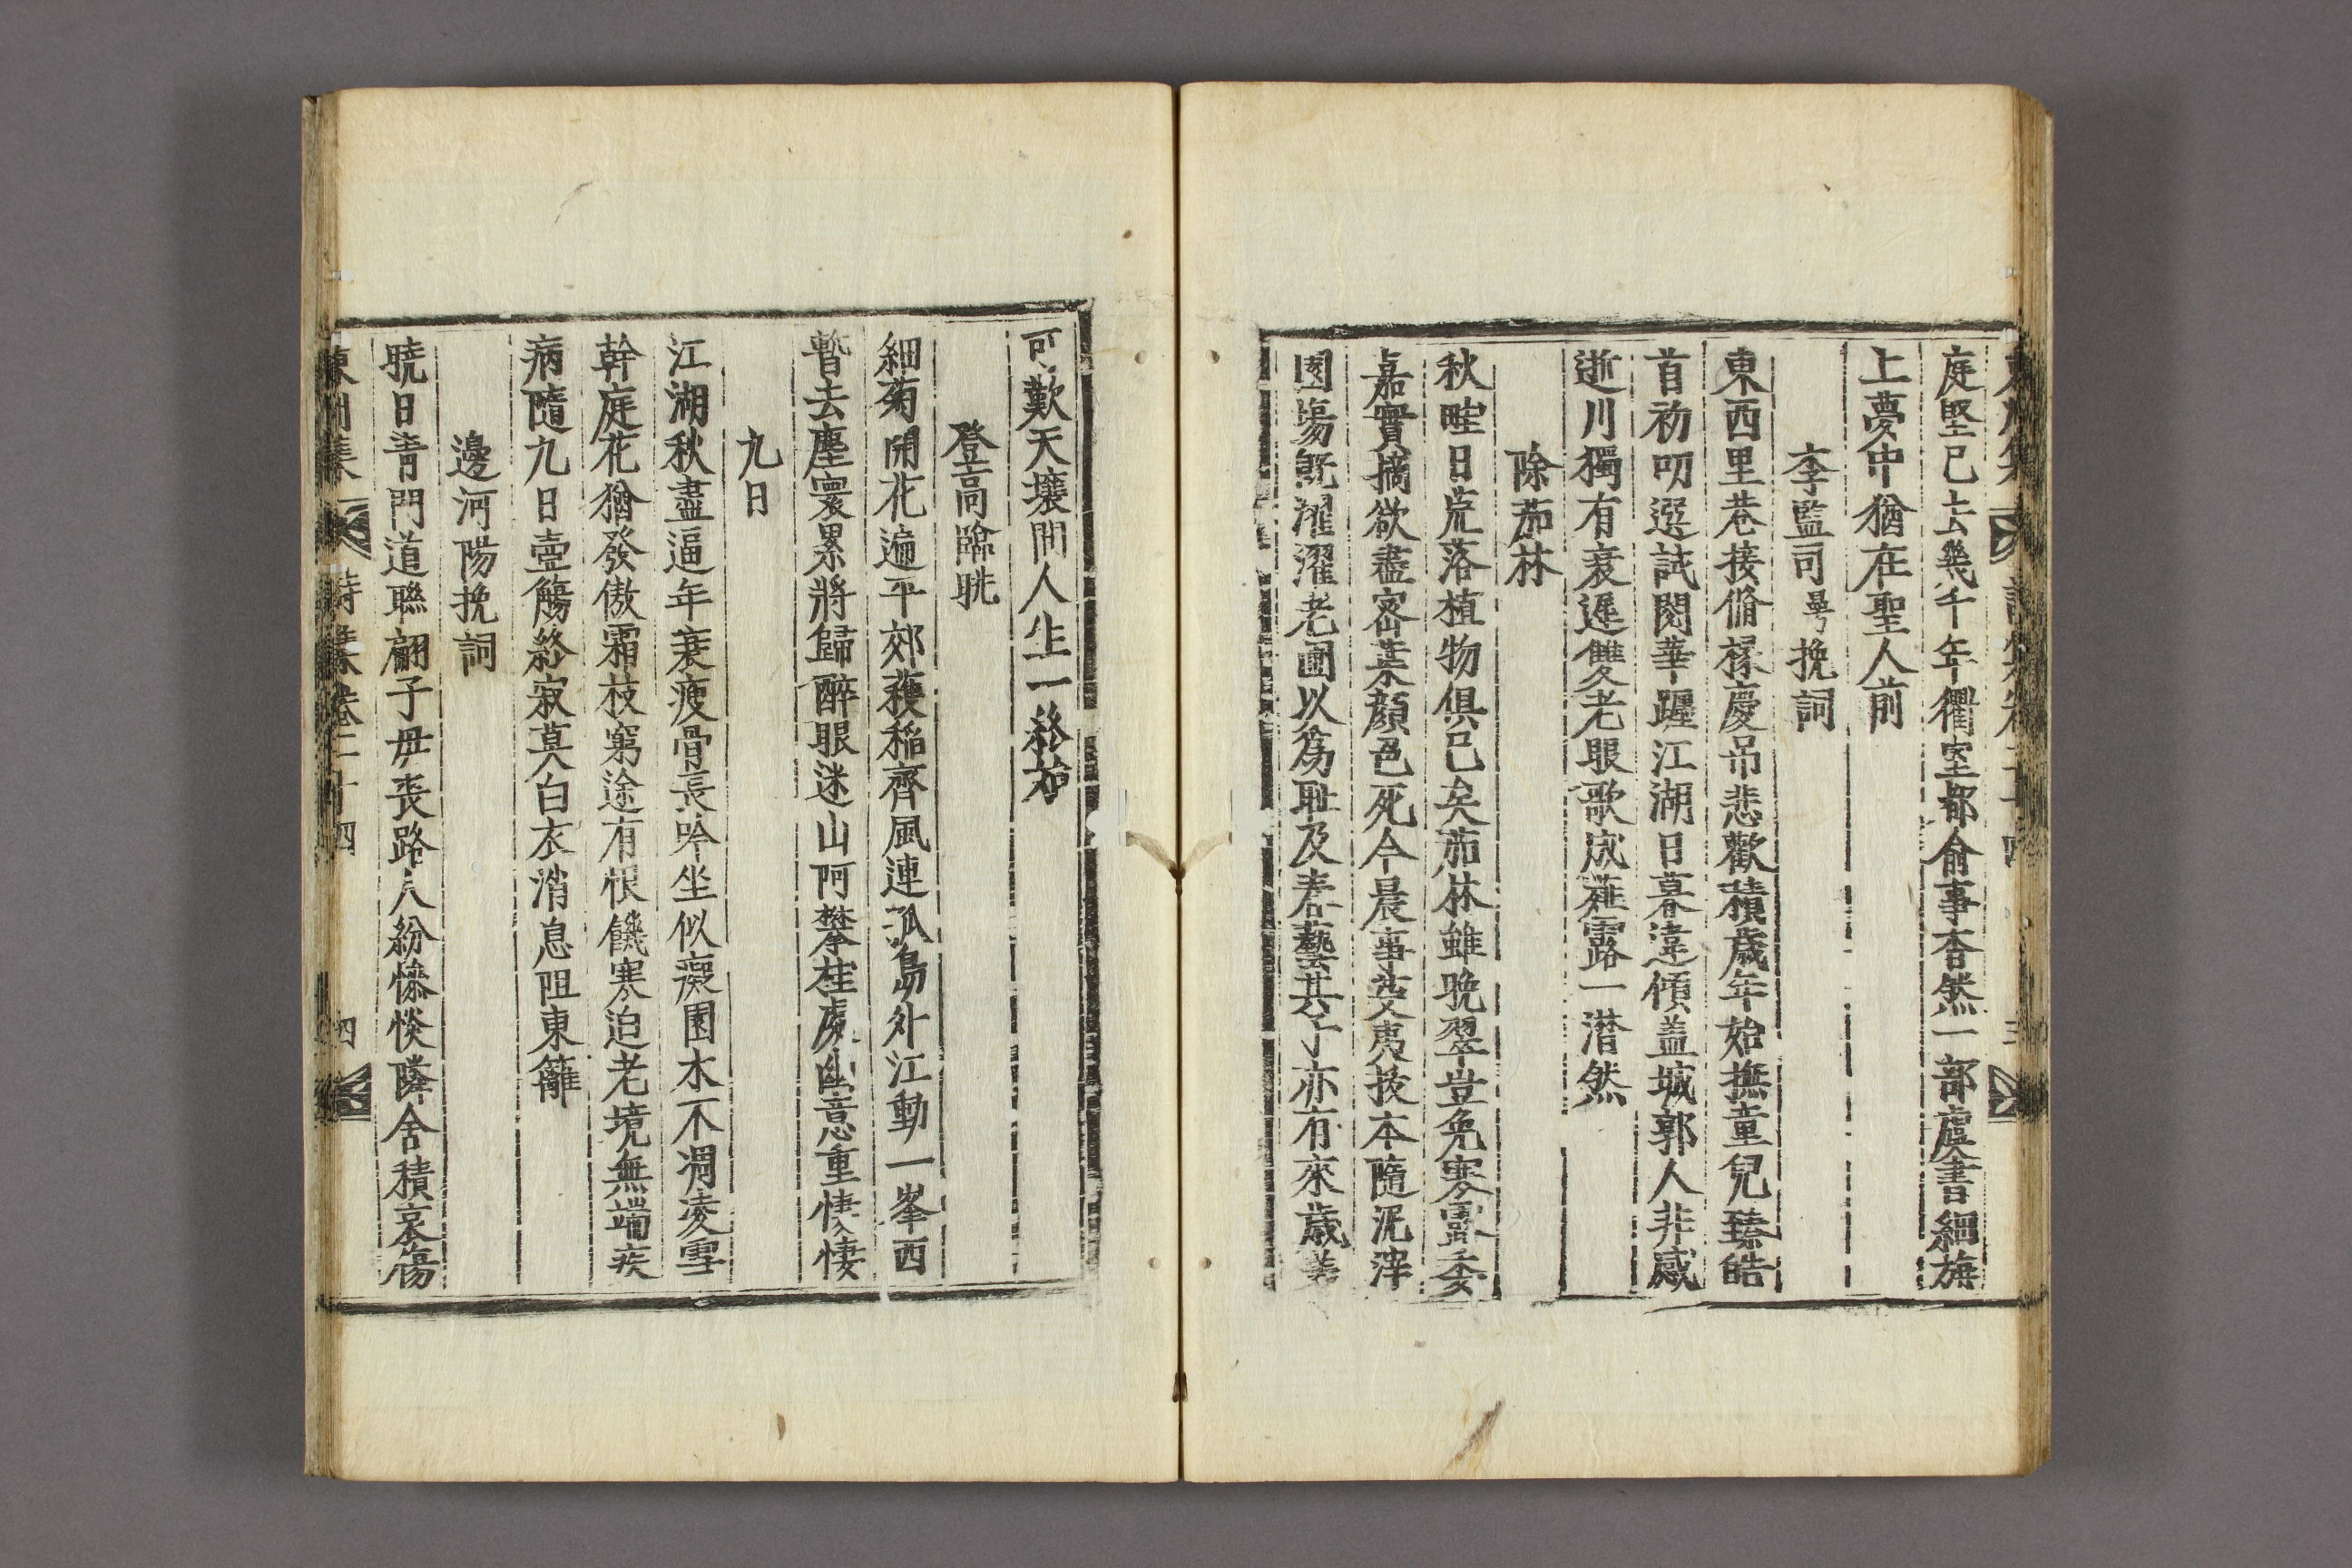 東州集 詩集卷二十四 三
庭堅已去幾千年衢室都俞事杳然一部虞書細旃
上夢中猶在聖人前
李監司㫤挽詞
東西里巷接脩椽慶吊悲歡積歲年始撫童兒臻皓
首初叨選試閱華躔江湖日暮違傾盖城郭人非感
逝川獨有衰遲雙老眼歌成薤露一潜然
除茄林
秋畦日荒落植物俱已矣茄林雖晩翠豈免寒露委
嘉實摘欲盡密葉顔色死今晨事芟夷拔本隨泥滓
園塲旣濯濯老圃以爲耻及春藝其子亦有來歲美
可歎天壤間人生一終已
登高臨眺
細菊開花遍平郊穫稲齊風連孤島外江動一峯西
暫去塵寰累將歸醉眼迷山阿攀桂處幽意重悽悽
九日
江湖秋盡逼年衰瘦骨長吟坐似癡園木不凋凌雪
幹庭花猶發傲霜枝窮途有恨饑寒迫老境無端疾
病隨九日壼觴終寂莫白衣消息阻東籬
邊河陽挽詞
曉日靑門道聯翩子母喪路人紛慘惔隣舍積哀傷
東州集 詩集卷二十四 四